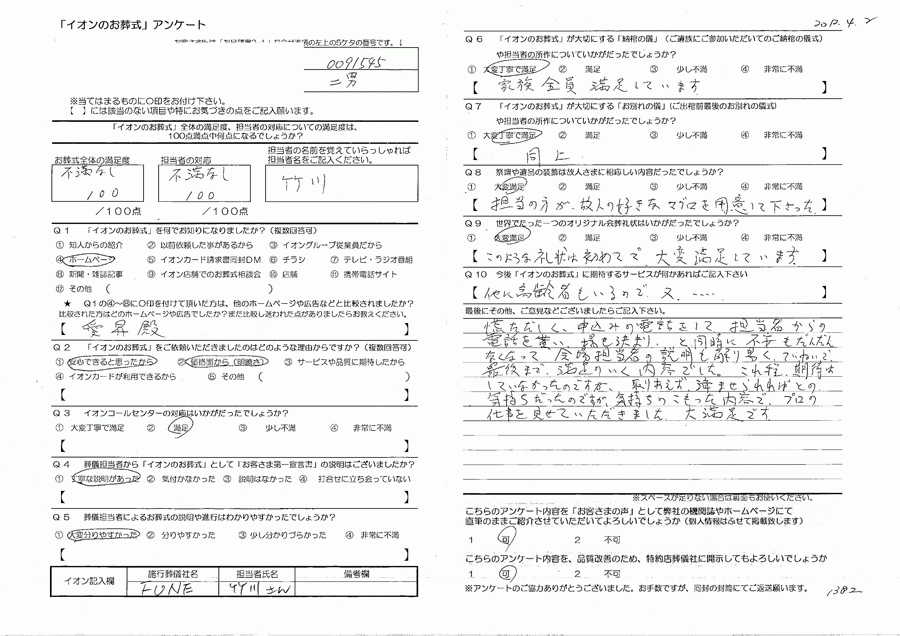 「イオンのお葬式」アンケート
の左上の5ケタの番号です。↓
0091545
二男
※当てはまるものに○印をお付け下さい。
【 】には該当のない項目や特にお気づきの点をご記入願います。
「イオンのお葬式」全体の満足度、担当者の対応についての満足度は、
100点満点中何点になるでしょうか?
お葬式全体の満足度
担当者の対応
担当者の名前を覚えていらっしゃれば
担当者名をご記入ください。
不満なし
100
不満なし
100
竹川
/100点
/100点
Q1 「イオンのお葬式」を何でお知りになりましたか?(複数回答可)
① 知人からの紹介 ② 以前依頼した事があるから ③ イオングループ従業員だから
④ ホームページ ⑤ イオンカード請求書同封DM ⑥ チラシ ⑦ テレビ・ラジオ番組
⑧ 新聞・雑誌記事 ⑨ イオン店舗でのお葬式相談会 ⑩ 店舗 ⑪ 携帯電話サイト
⑫ その他 ( )
★ Q1の④~⑧に○印を付けて頂いた方は、他のホームページや広告などと比較されましたか?
比較された方はどのホームページや広告でしたか?また比較し迷われた点がありましたらお教えください。
【 愛昇殿 】
Q2 「イオンのお葬式」をご依頼いただきましたのはどのような理由からですか?(複数回答可)
① 安心できると思ったから ② 価格面から(明瞭さ) ③ サービスや品質に期待したから
④ イオンカードが利用できるから ⑤ その他 ( )
【 】
Q3 イオンコールセンターの対応はいかがだったでしょうか?
① 大変丁寧で満足 ② 満足 ③ 少し不満 ④ 非常に不満
【 】
Q4 葬儀担当者から「イオンのお葬式」として「お客さま第一宣言書」の説明はございましたか?
① 丁寧な説明があった ② 気付かなかった ③ 説明はなかった ④ 打合せに立ち会っていない
【 】
Q5 葬儀担当者によるお葬式の説明や進行はわかりやすかったでしょうか?
① 大変分りやすかった ② 分りやすかった ③ 少し分かりづらかった ④ 非常に不満
【 】
イオン記入欄
施行葬儀社名
担当者氏名
備考欄
FUNE
竹川さん
Q6 「イオンのお葬式」が大切にする「納棺の儀」(ご遺族にご参加いただいてのご納棺の儀式)
や担当者の所作についていかがだったでしょうか?
① 大変丁寧で満足 ② 満足 ③ 少し不満 ④ 非常に不満
【 家族全員 満足しています 】
Q7 「イオンのお葬式」が大切にする「お別れの儀」(ご出棺前最後のお別れの儀式)
や担当者の所作についていかがだったでしょうか?
① 大変丁寧で満足 ② 満足 ③ 少し不満 ④ 非常に不満
【 同上 】
Q8 祭壇や遺品の装飾は故人さまに相応しい内容だったでしょうか?
① 大変満足 ② 満足 ③ 少し不満 ④ 非常に不満
【 担当の方が、故人の好きなマグロを用意して下さった 】
Q9 世界でたった一つのオリジナル会葬礼状はいかがだったでしょうか?
① 大変満足 ② 満足 ③ 少し不満 ④ 非常に不満
【 このような礼状は初めてで 大変満足しています 】
Q10 今後「イオンのお葬式」に期待するサービスが何かあればご記入下さい
【 他に高齢者もいるので、又、‥‥ 】
最後にその他、ご意見などございましたらご記入下さい。
慌ただしく、申込みの電話をして、担当者からの
電話を貰い、場も決まり...と同時に不安もだんだん
なくなって、 担当者の説明も解り易く、ていねいで、
最後まで、満足のいく内容でした。これ程、期待は
していなかったのですが、取りあえず、済ませられればとの
気持ちだったのですが、気持ちのこもった内容で、プロの
仕事を見せていただきました。大満足です。
※スペースが足りない場合は裏面もお使いください。
こちらのアンケート内容を「お客さまの声」として弊社の機関誌やホームページにて
直筆のままご紹介させていただいてよろしいでしょうか(個人情報はふせて掲載致します)
1 可 2 不可
こちらのアンケート内容を、品質改善のため、特約店葬儀社に開示してもよろしいでしょうか
1 可 2 不可
※アンケートのご協力ありがとうございました。お手数ですが、同封の封筒にてご返送願います。
1382